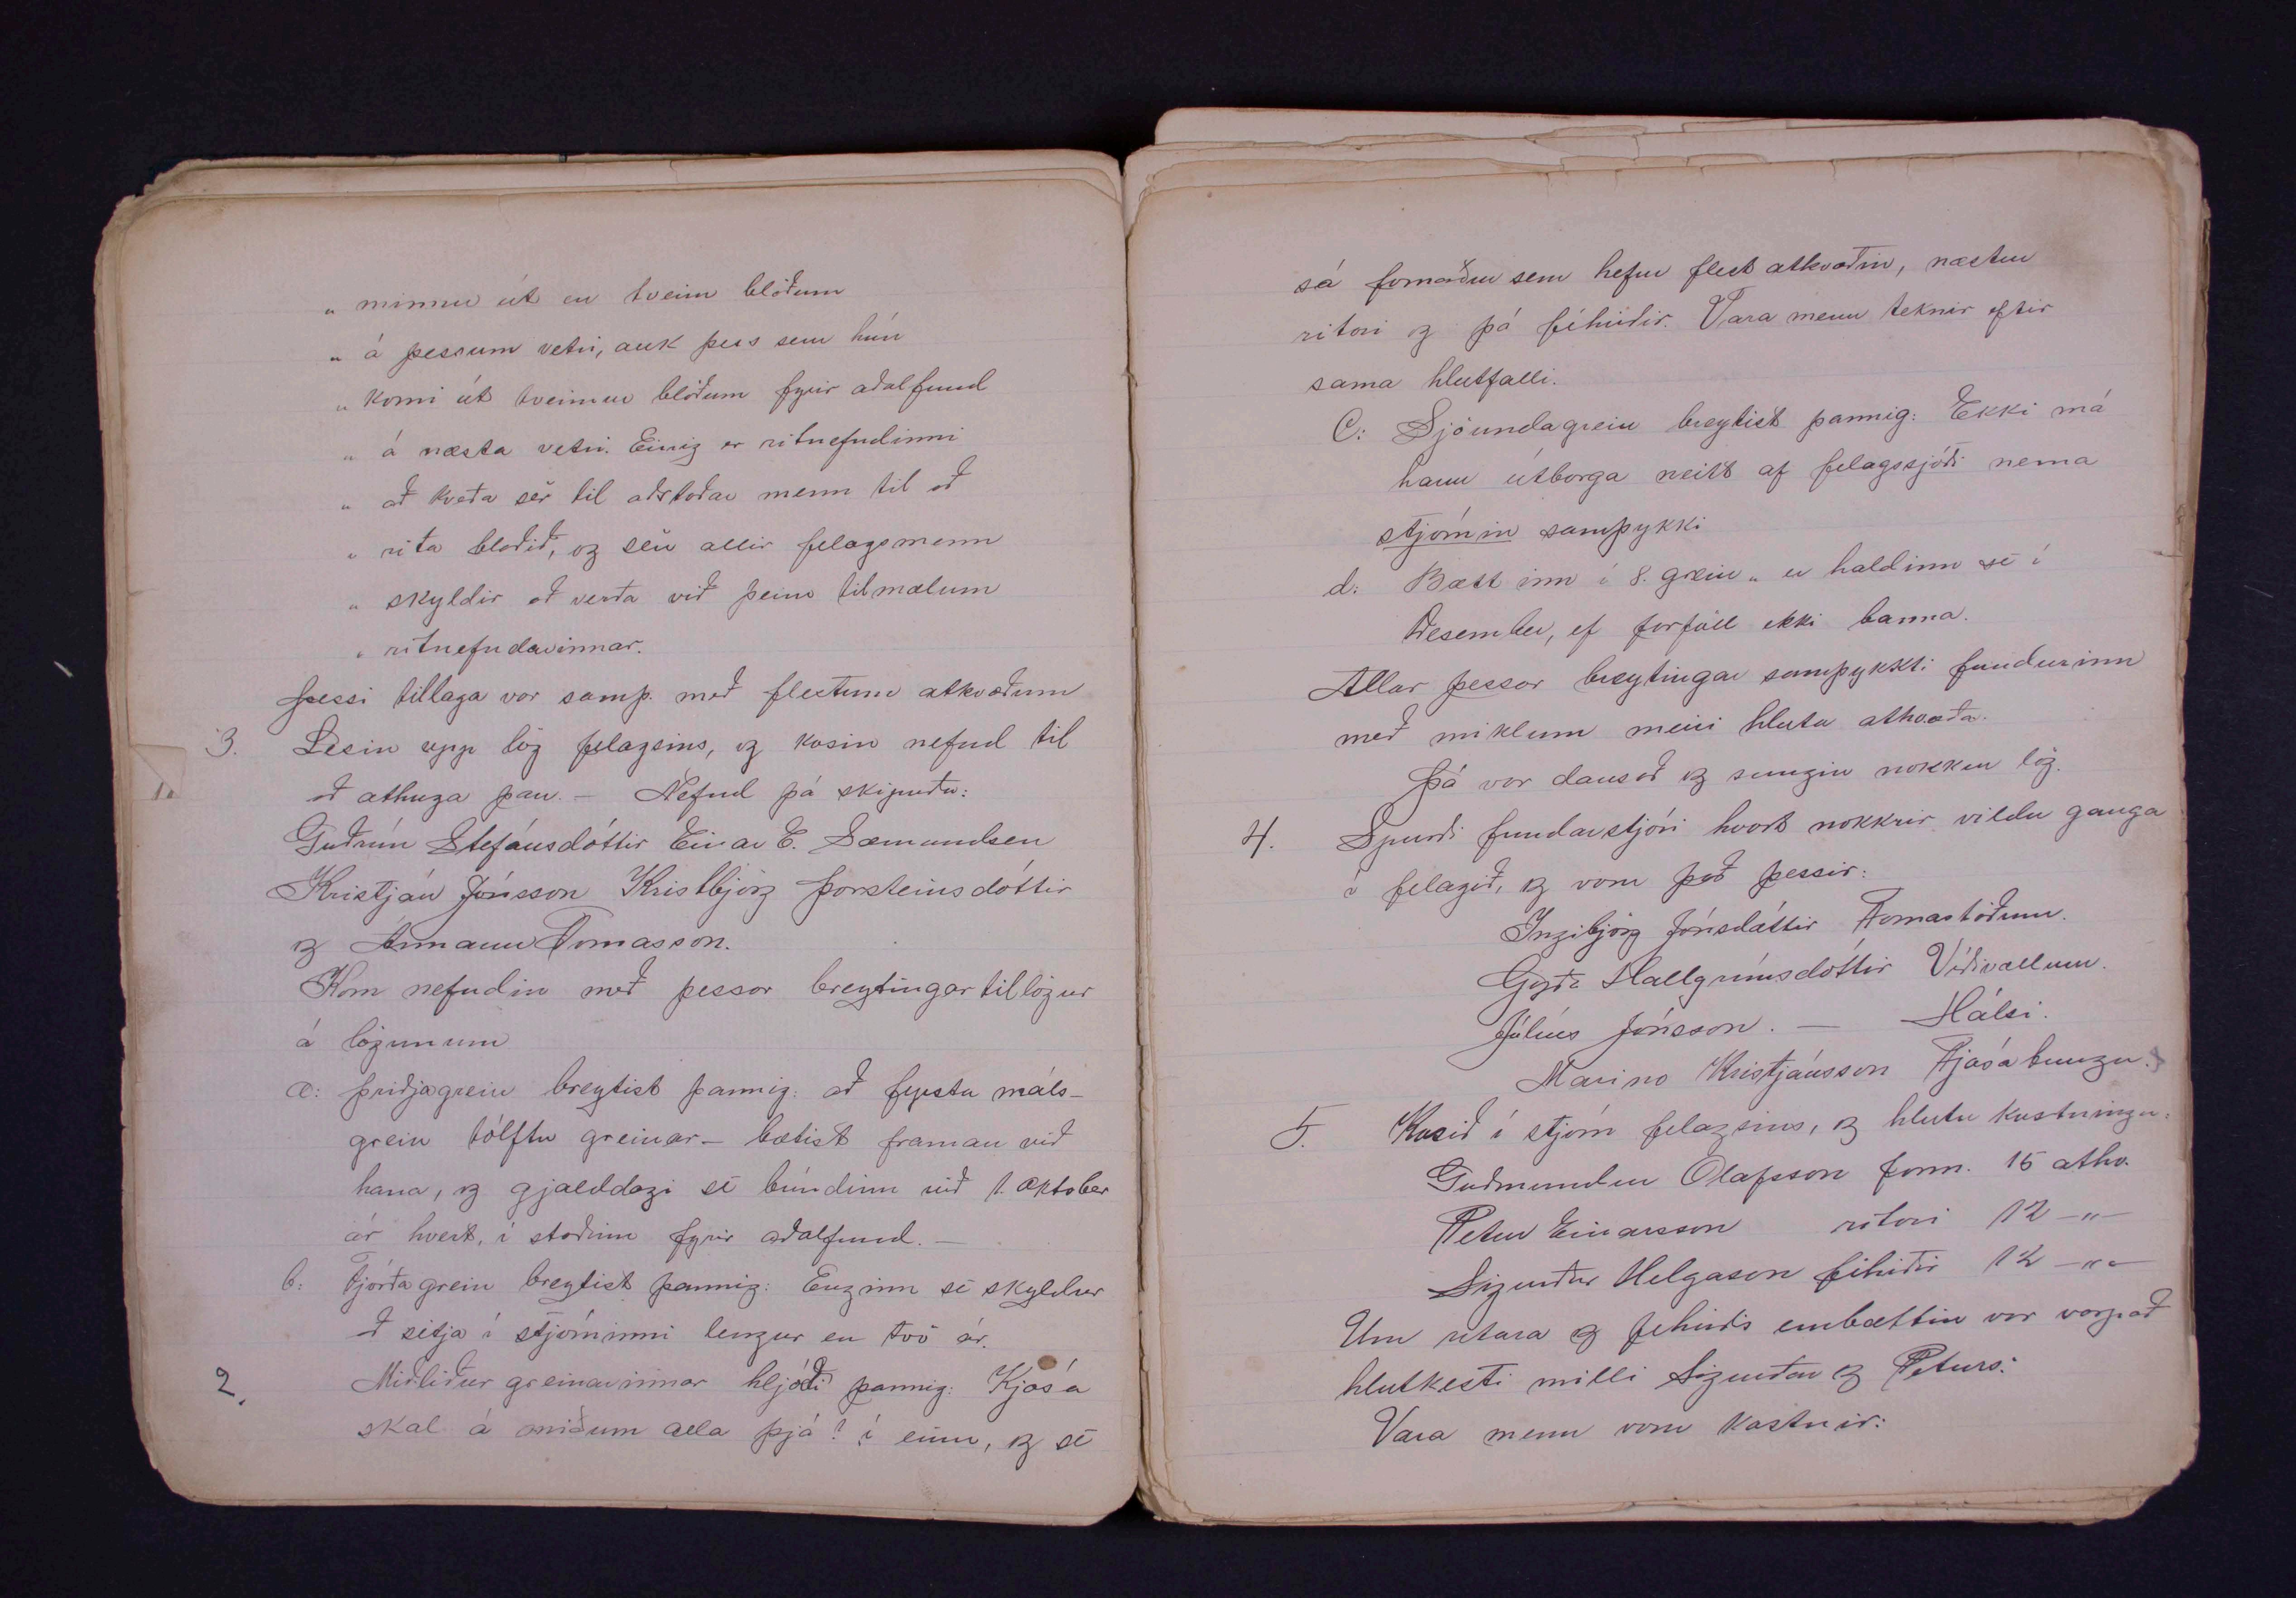 „ minnu út en tveim blöðum
„ á þessum vetri, auk þess sem hún
„ komi út tveimur blöðum fyrir aðalfund
„ á næsta vetri. Einig er ritnefndinni
„ að kveða sér til aðstoðar menn til að
„ rita blaðið, og séu allir felagsmenn
„ skyldir að verða við þeim tilmælum
„ ritnefndarinnar.
Þessi tillaga var samþ. með flestum atkvæðum
3. Lesin upp lög felagsins, og kosin nefnd til
að athuga þau. – Nefnd þá skipuðu:
Guðrún Stefánsdóttir Einar E. Sæmundsen
Kristján Jónsson Kristbjörg Þorsteinsdóttir
og Ármann Tomasson.
Kom nefndin með þessar breytingartillögur
á lögunum
a: Þriðjagrein breytist þannig: að fyrstu máls-
grein tólftu greinar – bætist framan við
hana, og gjalddagi sé bundinn við 1. Oktober
ár hvert, í staðinn fyrir aðalfund. –
b: Fjórða grein breytist þannig: Enginn sé skyldur
að sitja í stjórninni lengur en tvö ár.
2. Miðliður greinarinnar hljóði þannig: Kjósa
skal á miðum alla þrjá ! í einu, og sé
sá formaður sem hefur flest atkvæðin, næstur
ritari og þá féhirðir. Vara menn teknir eftir
sama hlutfalli.
C: Sjöundagrein breytist þannig: Ekki má
hann útborga neitt af felagssjóði nema
stjórnin samþykki
d: Bætt inn í 8. grein „ er haldinn sé í
Desember, ef forföll ekki banna.
Allar þessar breytingar samþykkti fundurinn
með miklum meiri hluta atkvæða.
Þá var dansað og sungin nokkur lög.
4. Spurði fundarstjóri hvort nokkrir vildu ganga
í felagið, og voru það þessir:
Ingibjörg Jónsdóttir Tornastöðum.
Gyða Hallgrímsdóttir Víðivöllum.
Júlíus Jónsson. – Hálsi.
Marino Kristjánsson Fjósatungu.
5. Kosið í stjórn felagsins, og hlutu kostningu:
Guðmundur Olafsson form. 15 atkv.
Petur Einarsson ritari 12 –„–
Sigurður Helgason féhirðir 12 –„–
Um ritara og fehirðis embættin var varpað
hlutkesti milli Sigurðar og Peturs.
Vara menn voru kostnir: